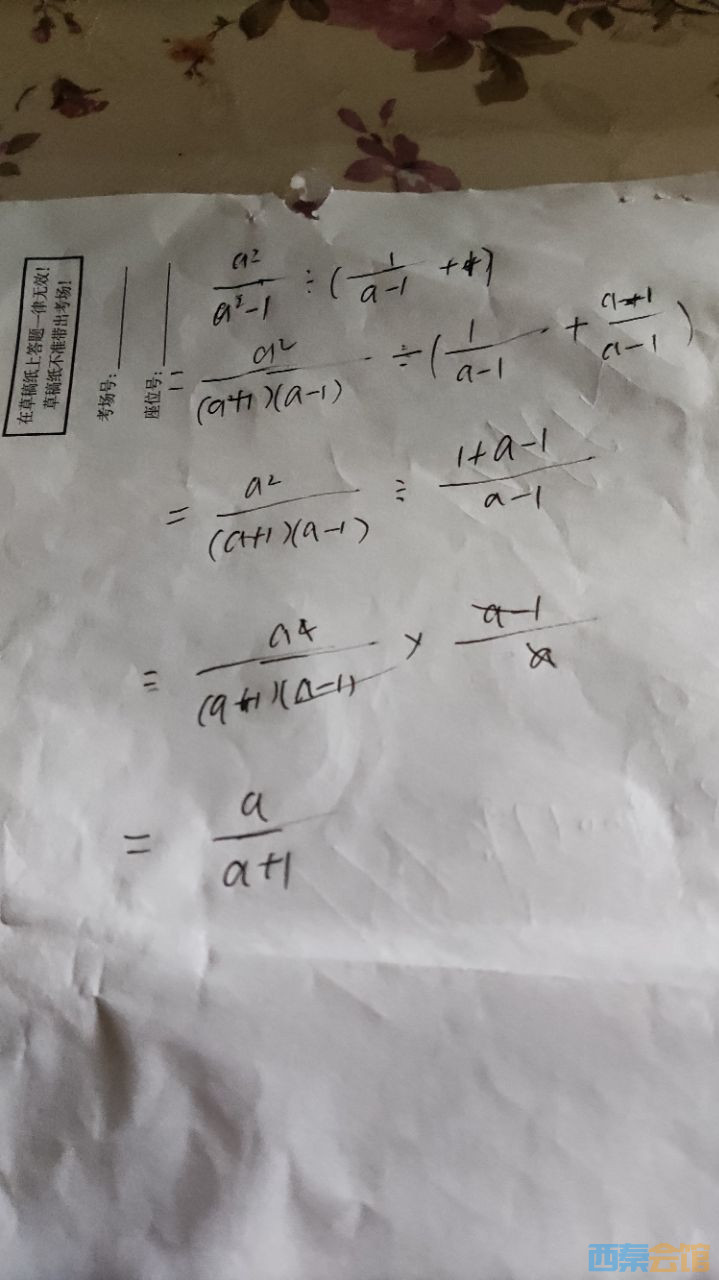 在草稿纸上答题一律无效!
草稿纸不准带出考场!
考场号:
座位号:
a²/(a²-1) ÷ (1/(a-1) + 1)
= a²/((a+1)(a-1)) ÷ (1/(a-1) + (a-1)/(a-1))
= a²/((a+1)(a-1)) ÷ (1+a-1)/(a-1)
= a²/((a+1)(a-1)) × (a-1)/a
= a/(a+1)
西秦会馆